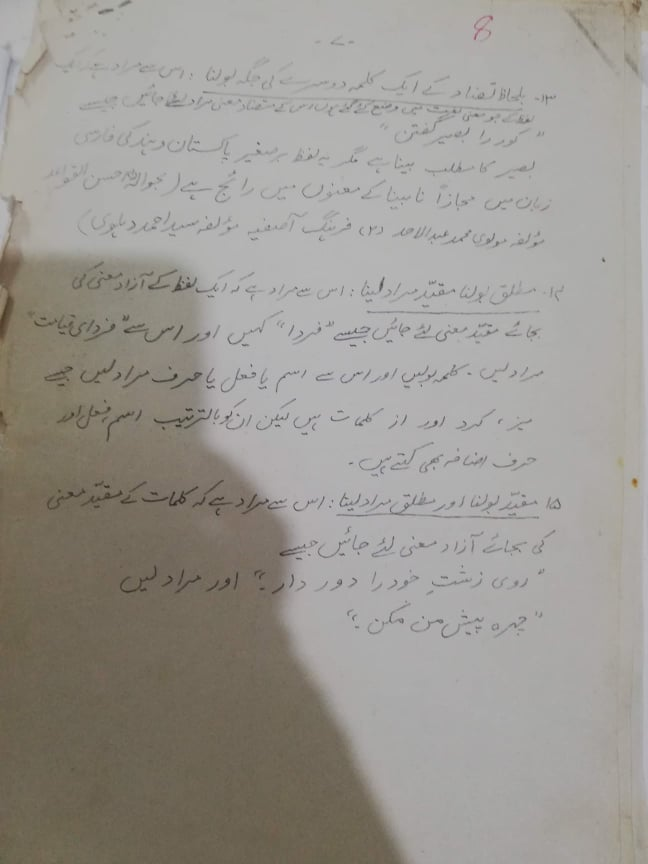 8
-۷-
۱۳- بلحاظ تضاد کے ایک کلمہ دوسرے کی جگہ بولنا : اس سے مراد ہے کہ ایک
لفظ کے جو معنی لغت میں وضع کئے گئے ہوں اس کے متضاد معنی مراد لئے جائیں جیسے
"کور را بصیر گفتن"
بصیر کا مطلب بینا ہے مگر یہ لفظ برصغیر پاکستان و ہند کی فارسی
زبان میں مجازاً نابینا کے معنوں میں رائج ہے (بحوالہ حسن القواعد
مؤلفہ مولوی محمد عبدالاحد (۲) فرہنگ آصفیہ مؤلفہ سید احمد دہلوی)
۱۴- مطلق بولنا مقیّد مراد لینا : اس سے مراد ہے کہ ایک لفظ کے آزاد معنی کی
بجائے مقیّد معنی لئے جائیں جیسے "فردا" کہیں اور اس سے "فردای قیامت"
مراد لیں ۔ کلمہ بولیں اور اس سے اسم یا فعل یا حرف مراد لیں جیسے
میز ، کرد اور از کلمات ہیں لیکن ان کو بالترتیب اسم، فعل اور
حرف اضافہ بھی کہتے ہیں ۔
۱۵ مقیّد بولنا اور مطلق مراد لینا : اس سے مراد ہے کہ کلمات کے مقیّد معنی
کی بجائے آزاد معنی لئے جائیں جیسے
"روی زشتِ خود را دور دار ؛" اور مراد لیں
"چہرہ پیش من مکن ؛"